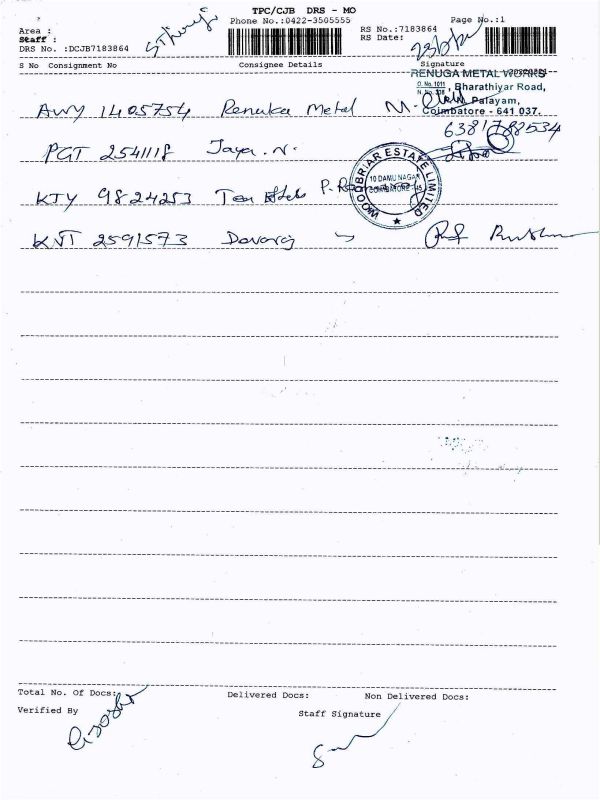 TPC/CJB DRS - MO
Phone No.:0422-3505555
Page No.:1
Area :
Staff :
DRS No. :DCJB7183864
RS No.:7183864
RS Date:
S No Consignment No Consignee Details Signature
RENUGA METAL WORKS
O. No. 1011
Bharathiyar Road,
Palayam,
Coimbatore - 641 037.
AWY 1405754 Renuka Metal M.
6381782534
PGT 2541118 Jaya . N.
WOODBRIAR ESTATE LIMITED
10 DAMU NAGAR
COIMBATORE-45
KTY 9824253 Tea
KNT 2591573 Devaraj
Total No. Of Docs:
Delivered Docs:
Non Delivered Docs:
Verified By
Staff Signature